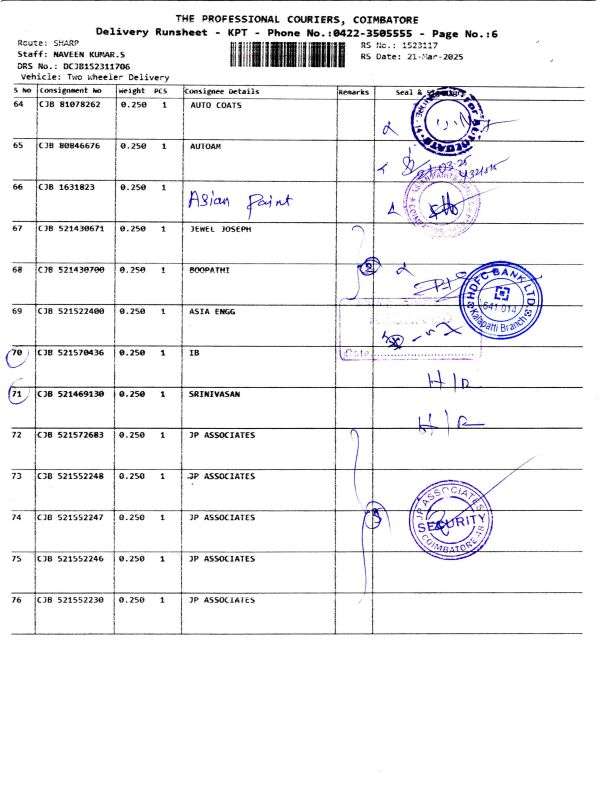 THE PROFESSIONAL COURIERS, COIMBATORE
Delivery Runsheet - KPT - Phone No.:0422-3505555 - Page No.:6
Route: SHARP
RS No.: 1523117
Staff: NAVEEN KUMAR.S
RS Date: 21-Mar-2025
DRS No.: DCJB152311706
Vehicle: Two Wheeler Delivery
S No Consignment No Weight PCS Consignee Details Remarks Seal &
64 CJB 81078262 0.250 1 AUTO COATS
65 CJB 80846676 0.250 1 AUTOAM
66 CJB 1631823 0.250 1 Asian Paint
67 CJB 521430671 0.250 1 JEWEL JOSEPH
68 CJB 521430700 0.250 1 BOOPATHI 2
HDFC BANK LTD. 641 014 Kalapatti Branch
69 CJB 521522400 0.250 1 ASIA ENGG
Date
70 CJB 521570436 0.250 1 IB H/R
71 CJB 521469130 0.250 1 SRINIVASAN H/R
72 CJB 521572683 0.250 1 JP ASSOCIATES
73 CJB 521552248 0.250 1 JP ASSOCIATES
74 CJB 521552247 0.250 1 JP ASSOCIATES 5
JP ASSOCIATES SECURITY COIMBATORE-48
75 CJB 521552246 0.250 1 JP ASSOCIATES
76 CJB 521552230 0.250 1 JP ASSOCIATES